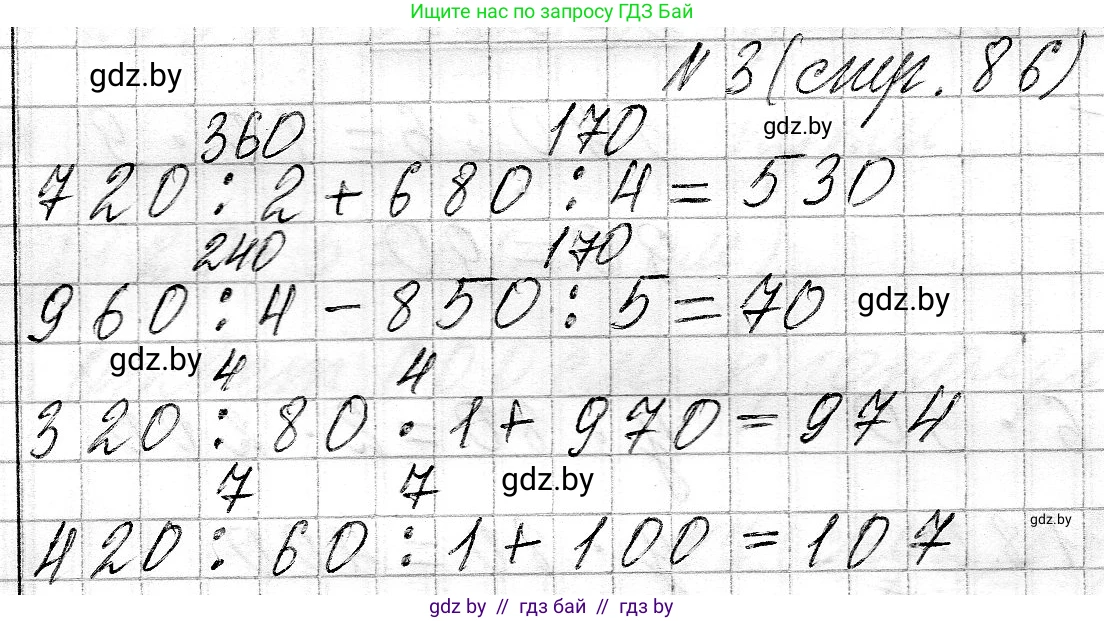 Ищите нас по запросу ГДЗ Бай
gdz.by
№ 3 (стр. 86)
360 170 gdz.by
720 : 2 + 680 : 4 = 530
240 170
960 : 4 - 850 : 5 = 70 gdz.by
gdz.by 4 4
320 : 80 · 1 + 970 = 974
7 7 gdz.by
420 : 60 : 1 + 100 = 107 gdz.by
gdz by // гдз бай // гдз by